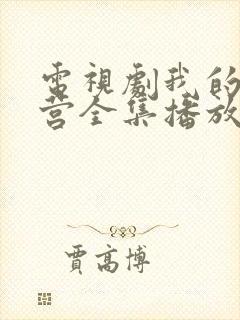 電視劇我的
营全集播放
賈高博